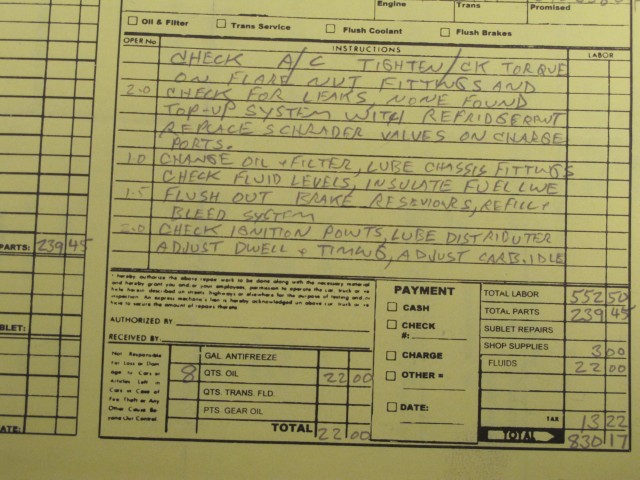 Engine Trans Promised
Oil & Filter Trans Service Flush Coolant Flush Brakes
OPER No INSTRUCTIONS LABOR
CHECK A/C TIGHTEN/CK TORQUE
ON FLARE NUT FITTINGS AND
2.0 CHECK FOR LEAKS, NONE FOUND
TOP-UP SYSTEM WITH REFRIDGERANT
REPLACE SCHRADER VALVES ON CHARGE
PORTS.
1.0 CHANGE OIL + FILTER, LUBE CHASSIS FITTINGS
CHECK FLUID LEVELS, INSULATE FUEL LINE
1.5 FLUSH OUT BRAKE RESEVIOURS, REFILL &
BLEED SYSTEM
2.0 CHECK IGNITION POINTS, LUBE DISTRIBUTER
ADJUST DWELL + TIMING, ADJUST CARB. IDLE
PARTS: 239 45
BLET:
ATE:
I hereby authorize the above repair work to be done along with the necessary material
and hereby grant you and/or your employees permission to operate the car, truck or ve-
hicle herein described on streets, highways or elsewhere for the purpose of testing and/or
inspection. An express mechanic's lien is hereby acknowledged on above car, truck or ve-
hicle to secure the amount of repairs thereto.
AUTHORIZED BY
RECEIVED BY
Not Responsible
For Loss or Dam-
age to Cars or
Articles Left in
Cars in Case of
Fire, Theft or Any
Other Cause Be-
yond Our Control.
GAL ANTIFREEZE
8 QTS. OIL 22 00
QTS. TRANS FLD
PTS. GEAR OIL
TOTAL 22 00
PAYMENT
CASH
CHECK
#:
CHARGE
OTHER =
DATE:
TOTAL LABOR 552 50
TOTAL PARTS 239 45
SUBLET REPAIRS
SHOP SUPPLIES 3 00
FLUIDS 22 00
TAX 13 22
TOTAL 830 17